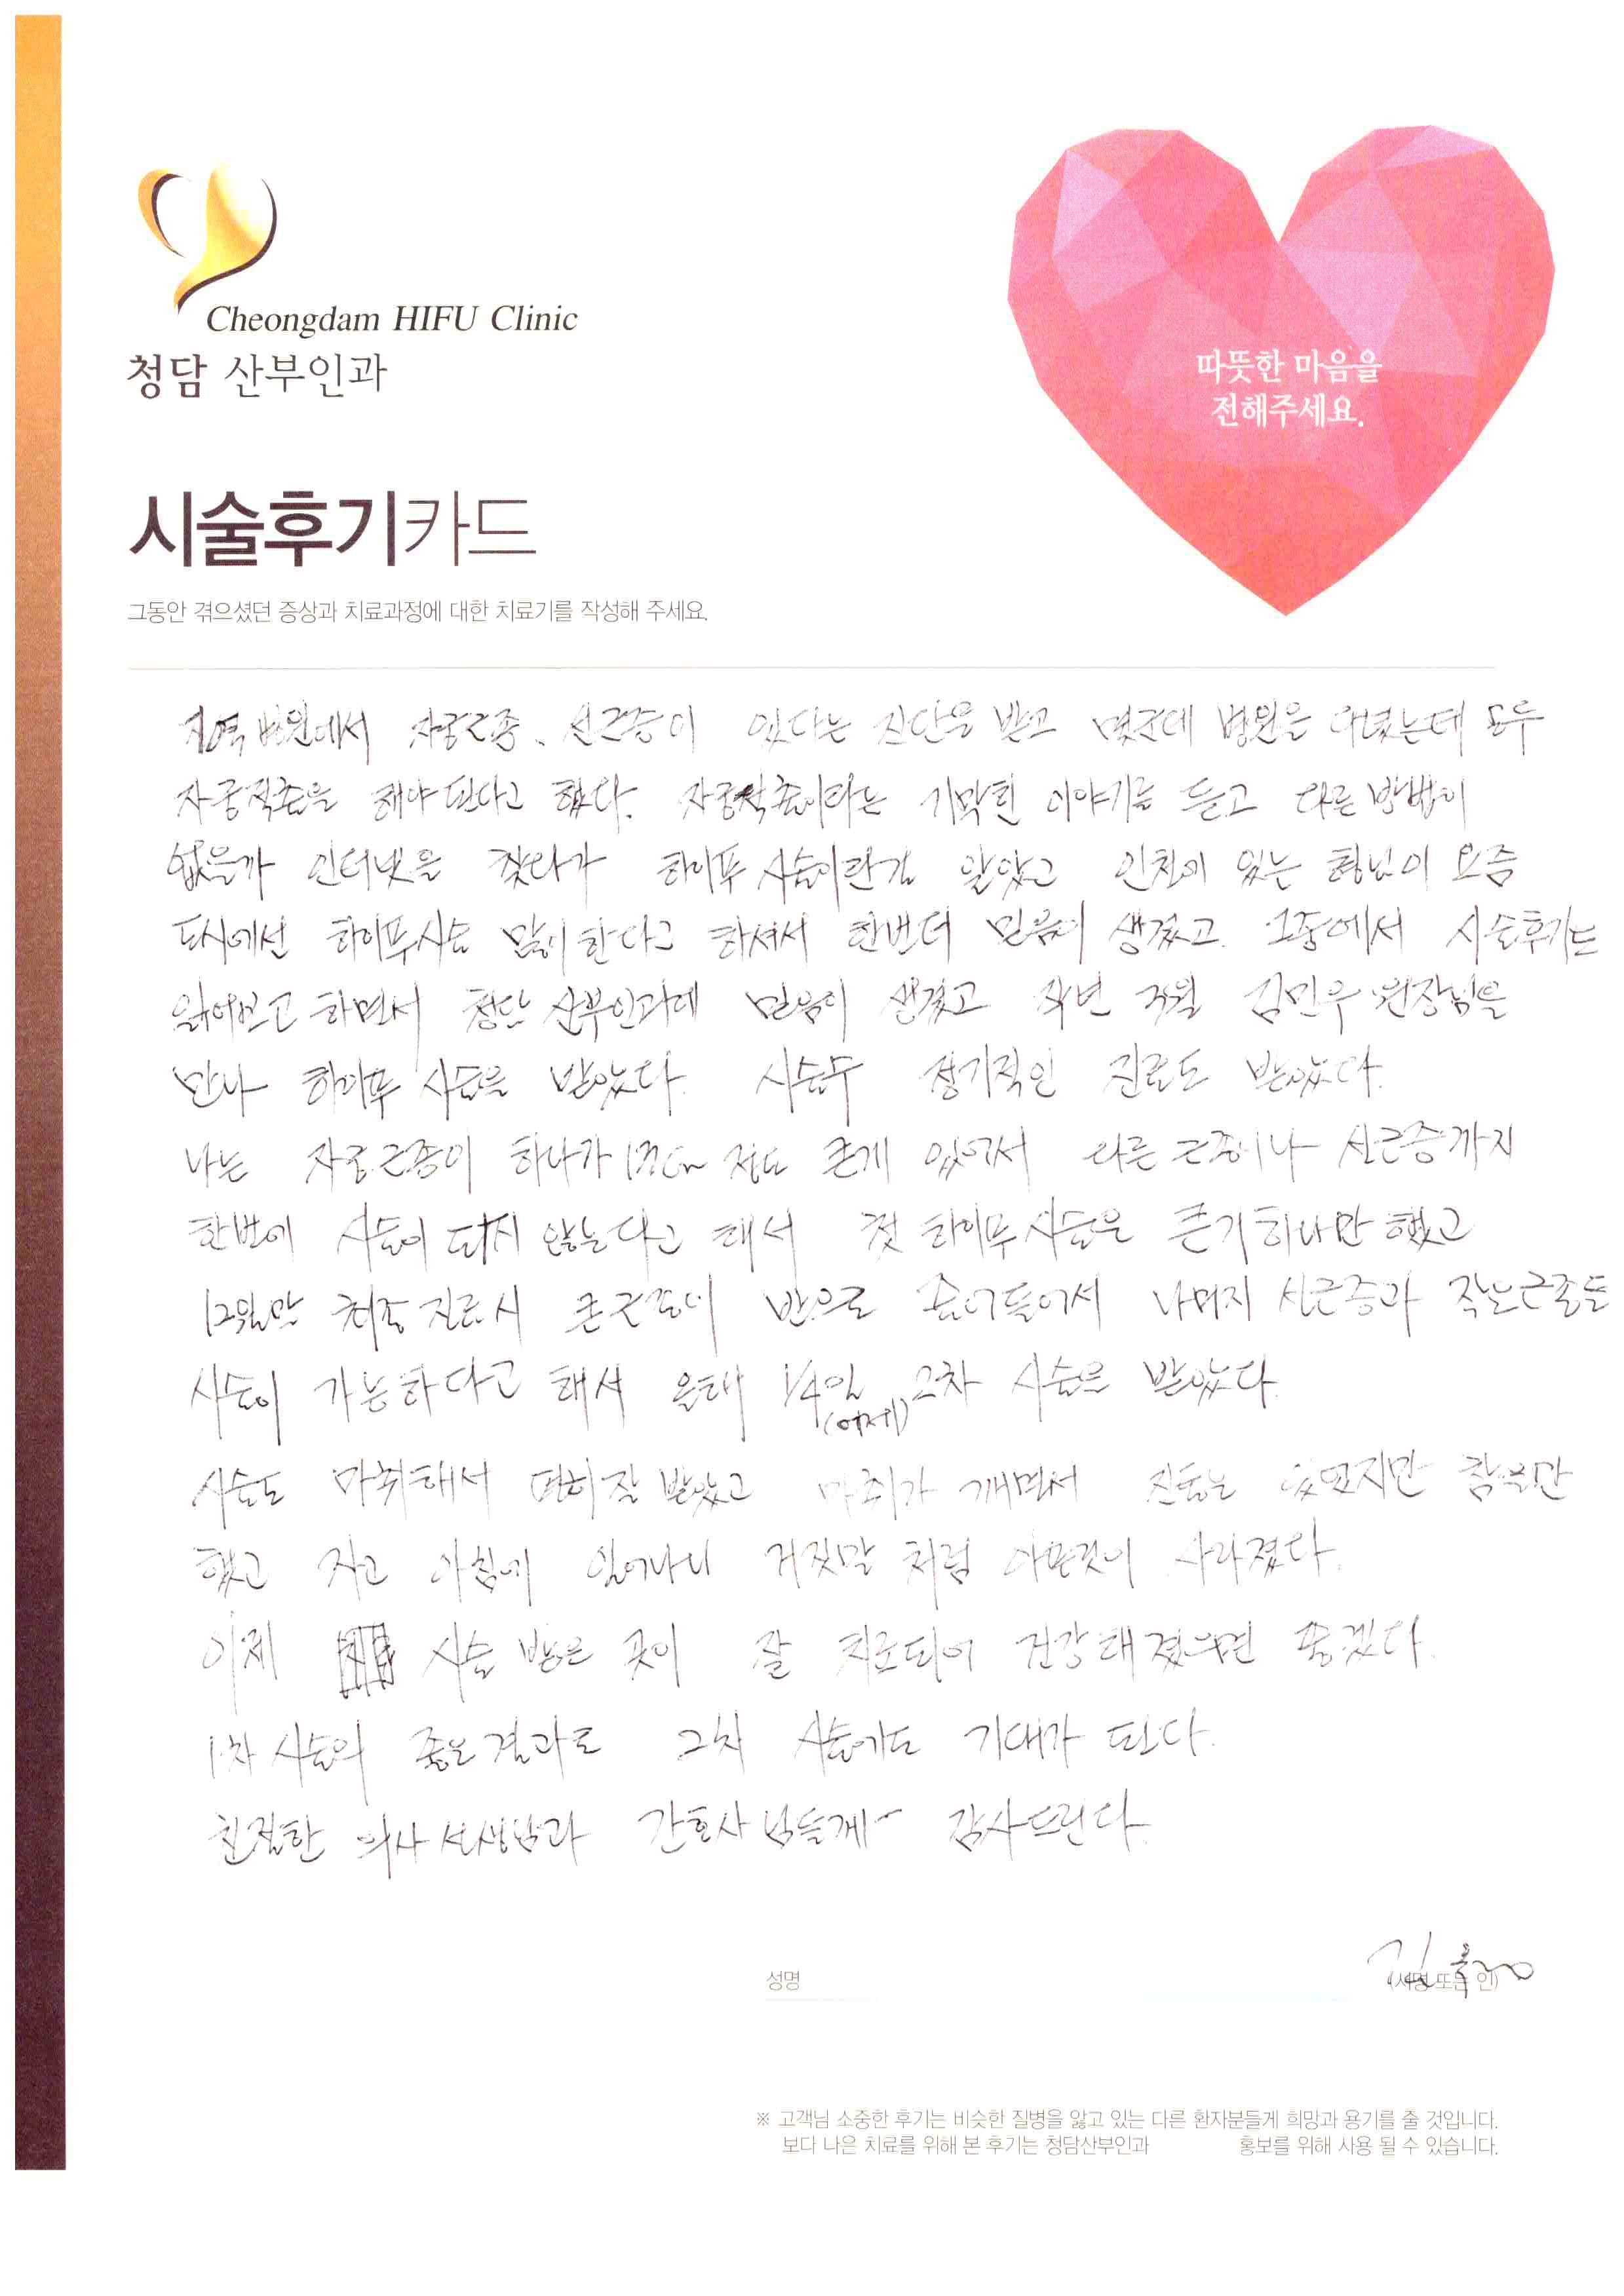 Cheongdam HIFU Clinic
청담 산부인과
따뜻한 마음을
전해주세요.
시술후기카드
그동안 겪으셨던 증상과 치료과정에 대한 치료기를 작성해 주세요.
지역 병원에서 자궁근종、선근증이 있다는 진단을 받고 몇군데 병원을 다녔는데 모두
자궁적출을 해야 된다고 했다. 자궁적출이라는 기막힌 이야기를 듣고 다른 방법이
없을까 인터넷을 찾다가 하이푸 시술이란걸 알았고 인천에 있는 형님이 요즘
도시에선 하이푸시술 많이 한다고 하셔서 한번더 믿음이 생겼고 그중에서 시술후기도
읽어보고 하면서 청담 산부인과에 믿음이 생겼고 작년 김민우 원장님을
만나 하이푸 시술을 받았다. 시술후 정기적인 진료도 받았다.
나는 자궁근종이 하나가 정도 큰게 있어서 다른 근종이나 선근증까지
한번에 시술이 되지 않는다고 해서 첫 하이푸 시술은 큰거 하나만 했고
12월말 최종 진료시 큰 근종이 반으로 줄어들어서 나머지 선근증과 작은근종들
시술이 가능하다고 해서 올해 1/4일 (어제) 2차 시술을 받았다.
시술도 마취해서 편히 잘 받았고 마취가 깨면서 진통은 있었지만 참을만
했고 자고 아침에 일어나니 거짓말 처럼 아픈것이 사라졌다.
이제 시술 받은 곳이 잘 치료되어 건강해졌으면 좋겠다.
1차 시술의 좋은 결과로 2차 시술에도 기대가 된다.
친절한 의사 선생님과 간호사 님들께~ 감사드린다.
성명 (서명 또는 인)
※ 고객님 소중한 후기는 비슷한 질병을 앓고 있는 다른 환자분들게 희망과 용기를 줄 것입니다.
보다 나은 치료를 위해 본 후기는 청담산부인과 홍보를 위해 사용 될 수 있습니다.